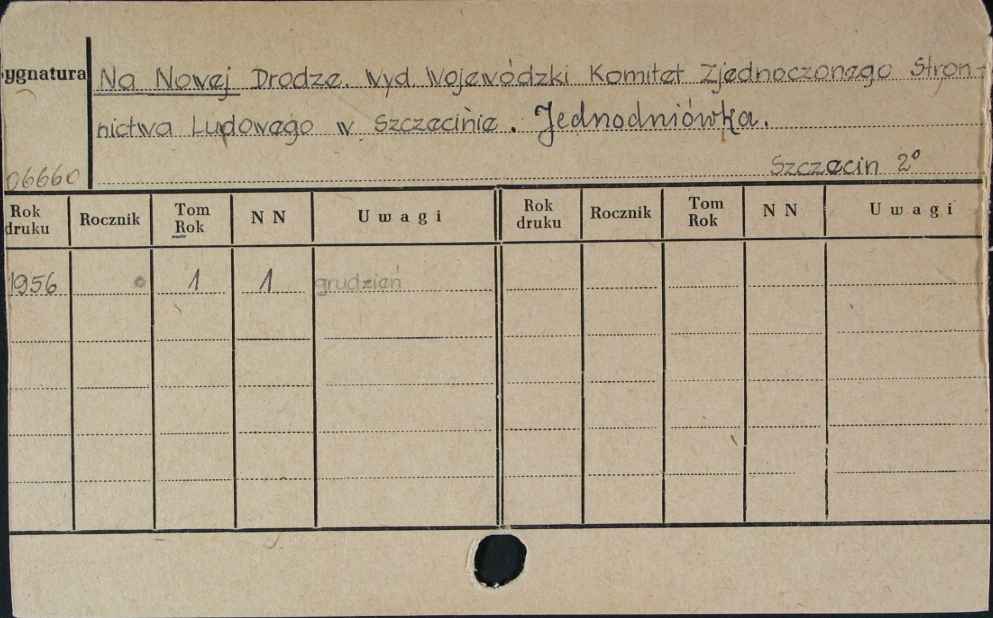 ygnatura
Na Nowej Drodze. Wyd. Wojewódzki Komitet Zjednoczonego Stron-
nictwa Ludowego w Szczecinie. Jednodniówka.
Szczecin 2°
06660
Rok druku Rocznik Tom Rok NN Uwagi Rok druku Rocznik Tom Rok NN Uwagi
1956 1 1 grudzień